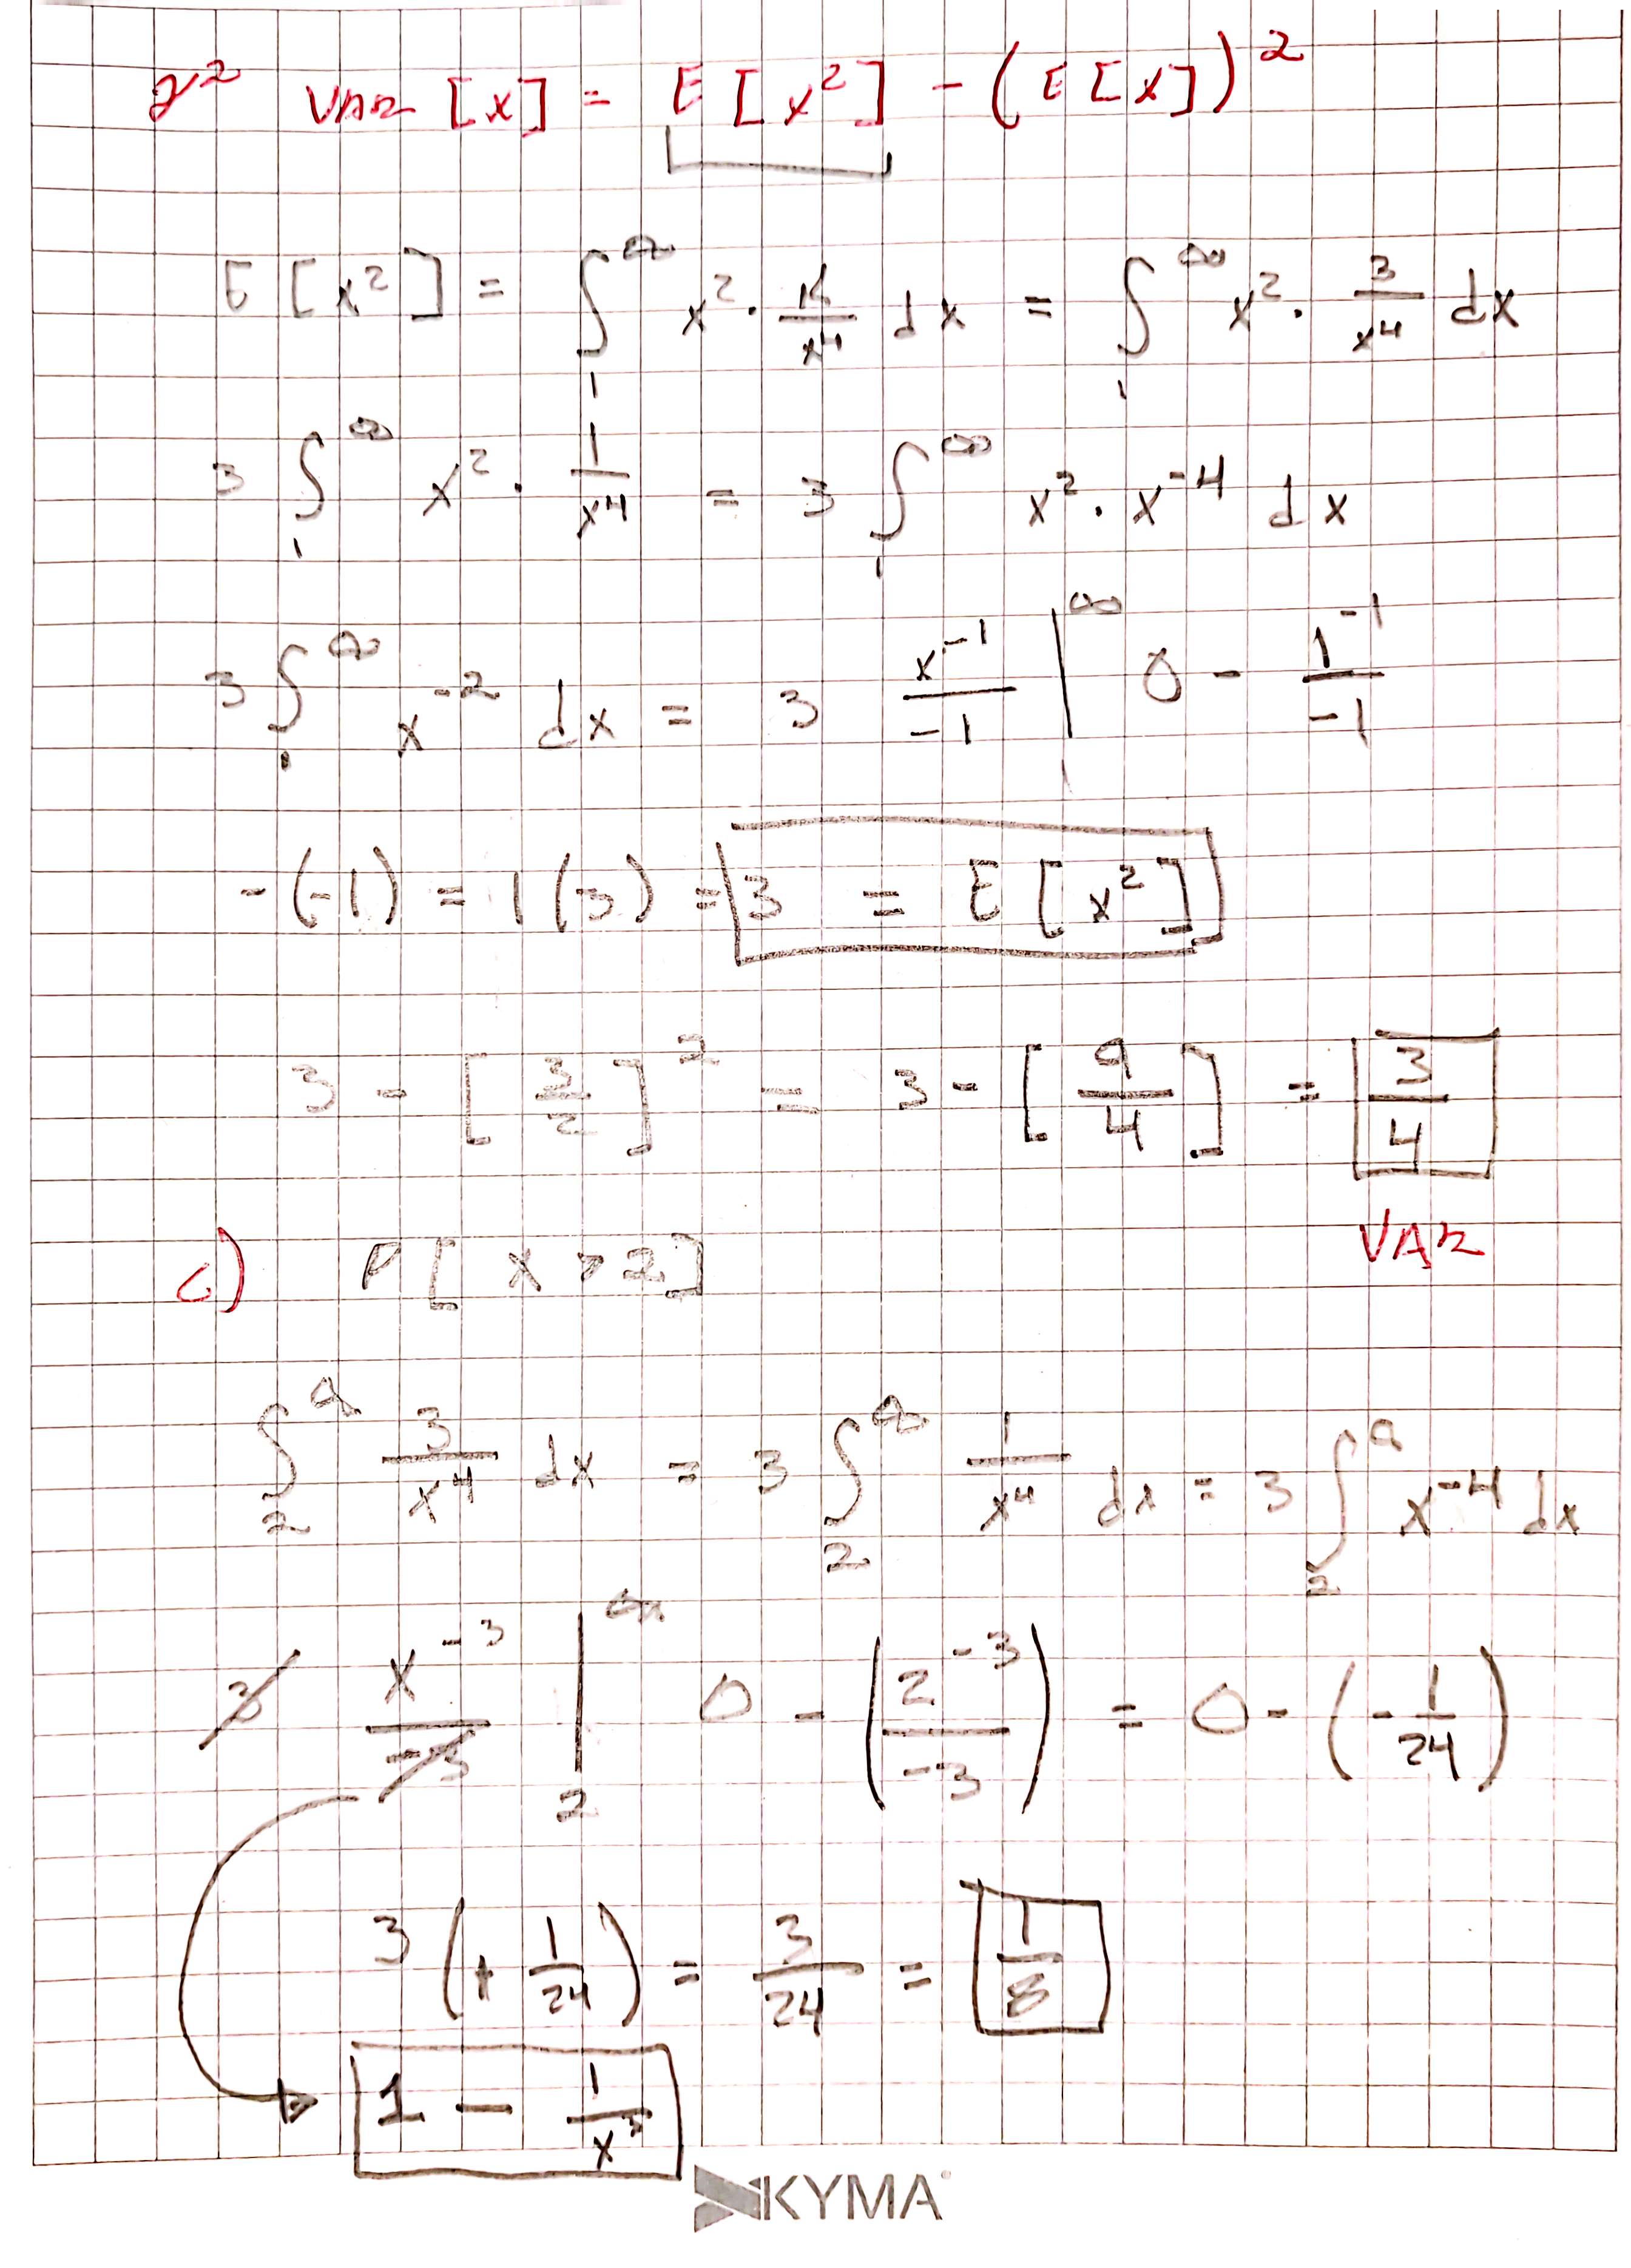 σ² VAR [x] = E [x²] - (E [x])²
E [x²] = ∫₁^∞ x² · k/x⁴ dx = ∫₁^∞ x² · 3/x⁴ dx
3 ∫₁^∞ x² · 1/x⁴ = 3 ∫₁^∞ x² · x⁻⁴ dx
3 ∫₁^∞ x⁻² dx = 3 x⁻¹/-1 |^∞ 0 - 1⁻¹/-1
-(-1) = 1(3) = 3 = E [x²]
3 - [3/2]² = 3 - [9/4] = 3/4
VAR
c) P[ x > 2]
∫₂^∞ 3/x⁴ dx = 3 ∫₂^∞ 1/x⁴ dx = 3 ∫₂^∞ x⁻⁴ dx
3 x⁻³/-3 |₂^∞ 0 - (2⁻³/-3) = 0 - (-1/24)
3 (+ 1/24) = 3/24 = 1/8
1 - 1/x³
KYMA